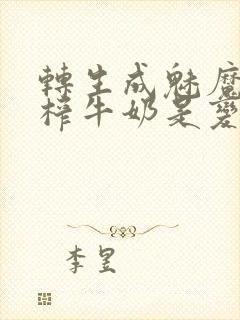 轉生成魅魔
榨牛奶是變
李昱